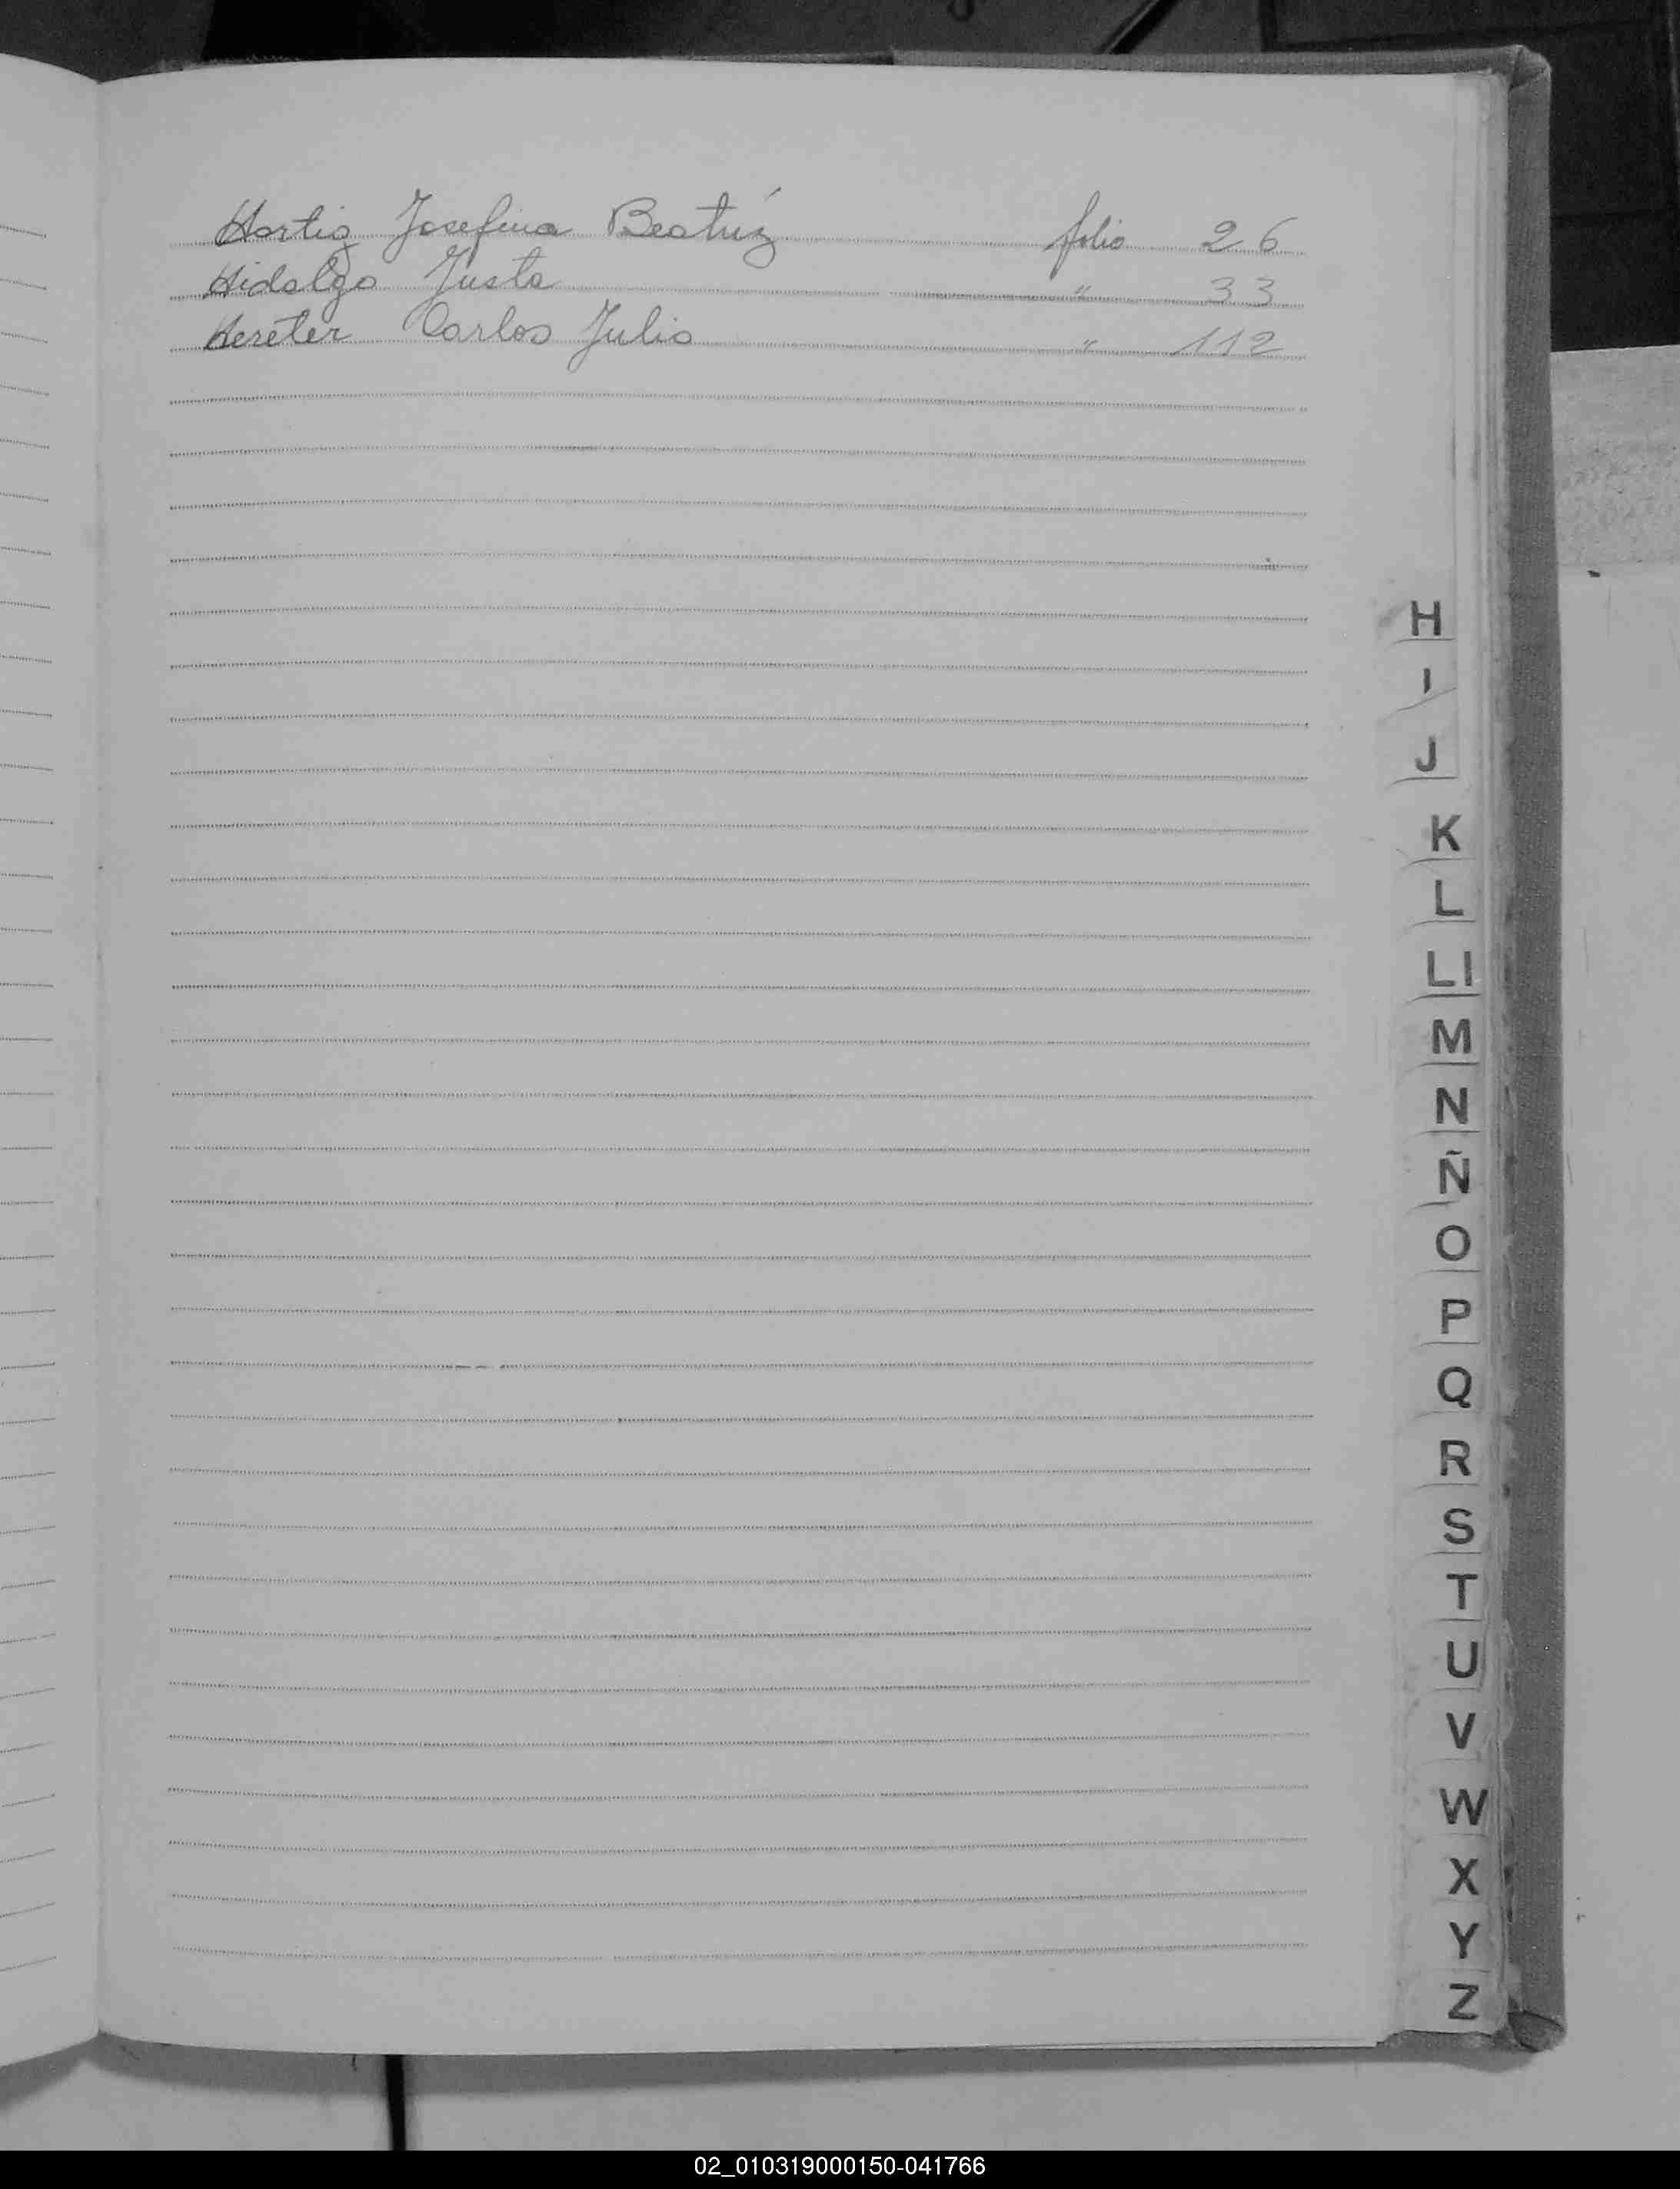 Hartig Josefina Beatríz folio 26
Hidalgo Justa " 33
Hereter Carlos Julio " 112
H
I
J
K
L
Ll
M
N
Ñ
O
P
Q
R
S
T
U
V
W
X
Y
Z
02_010319000150-041766